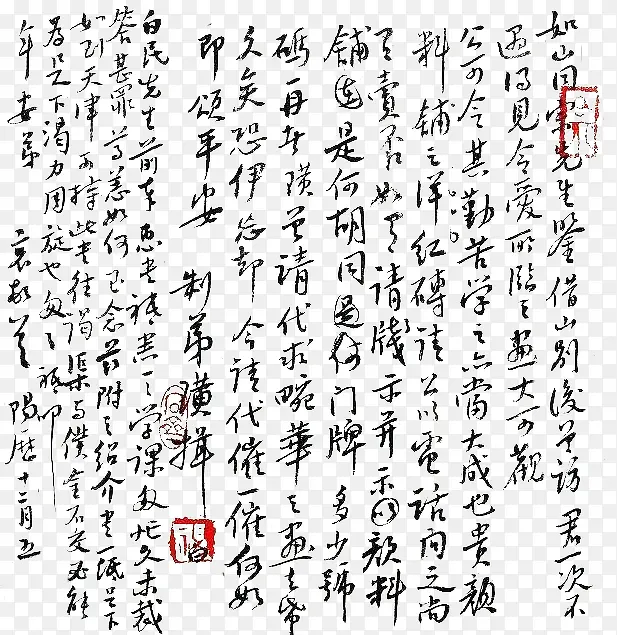 如山同宗先生鉴借山别后曾访君一次不
遇得见令爱所临之画大可观
公可令其勤苦学之亦当大成也贵颜
料铺之洋红砖请公以电话问之尚
有卖否如有请笺示并示明颜料
铺这是何胡同是何门牌多少号
码再者璜曾请代求畹华之画之布
久矣恐伊忘却今请代催一催何如
即颂平安 制弟璜揖
白民先生前奉惠书祗悉一之学课匆忙久未裁
答甚罪尊恙如何已念兹附之绍介书一纸足下
如到天津可持此书往谒渠与仆金石交必能
为足下竭力周旋也匆匆祗叩
年安弟 哀 阳历十二月五